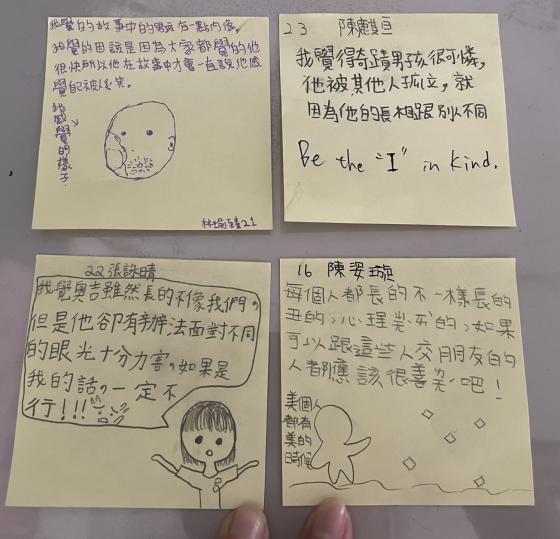 我覺的故事中的男孩有一點內傷,
我覺的因該是因為大家都覺的他
很快所以他在故事中才會一直說他感
覺自己被人笑。
我感覺的樣子.
21
23 陳麒亘
我覺得奇蹟男孩很可憐,
他被其他人孤立,就
因為他的長相跟別人不同
Be the "I" in kind.
22 張詠晴
我覺奧吉雖然長的不像我們。
但是他卻有辦法面對不同
的眼光十分力害。如果是
我的話。一定不
行!!!
16 陳姿璇
每個人都長的不一樣長的
丑的,心理的,如果
可以跟這些人交朋友的
人都應該很善良吧!
美個人
都有
美的
時候